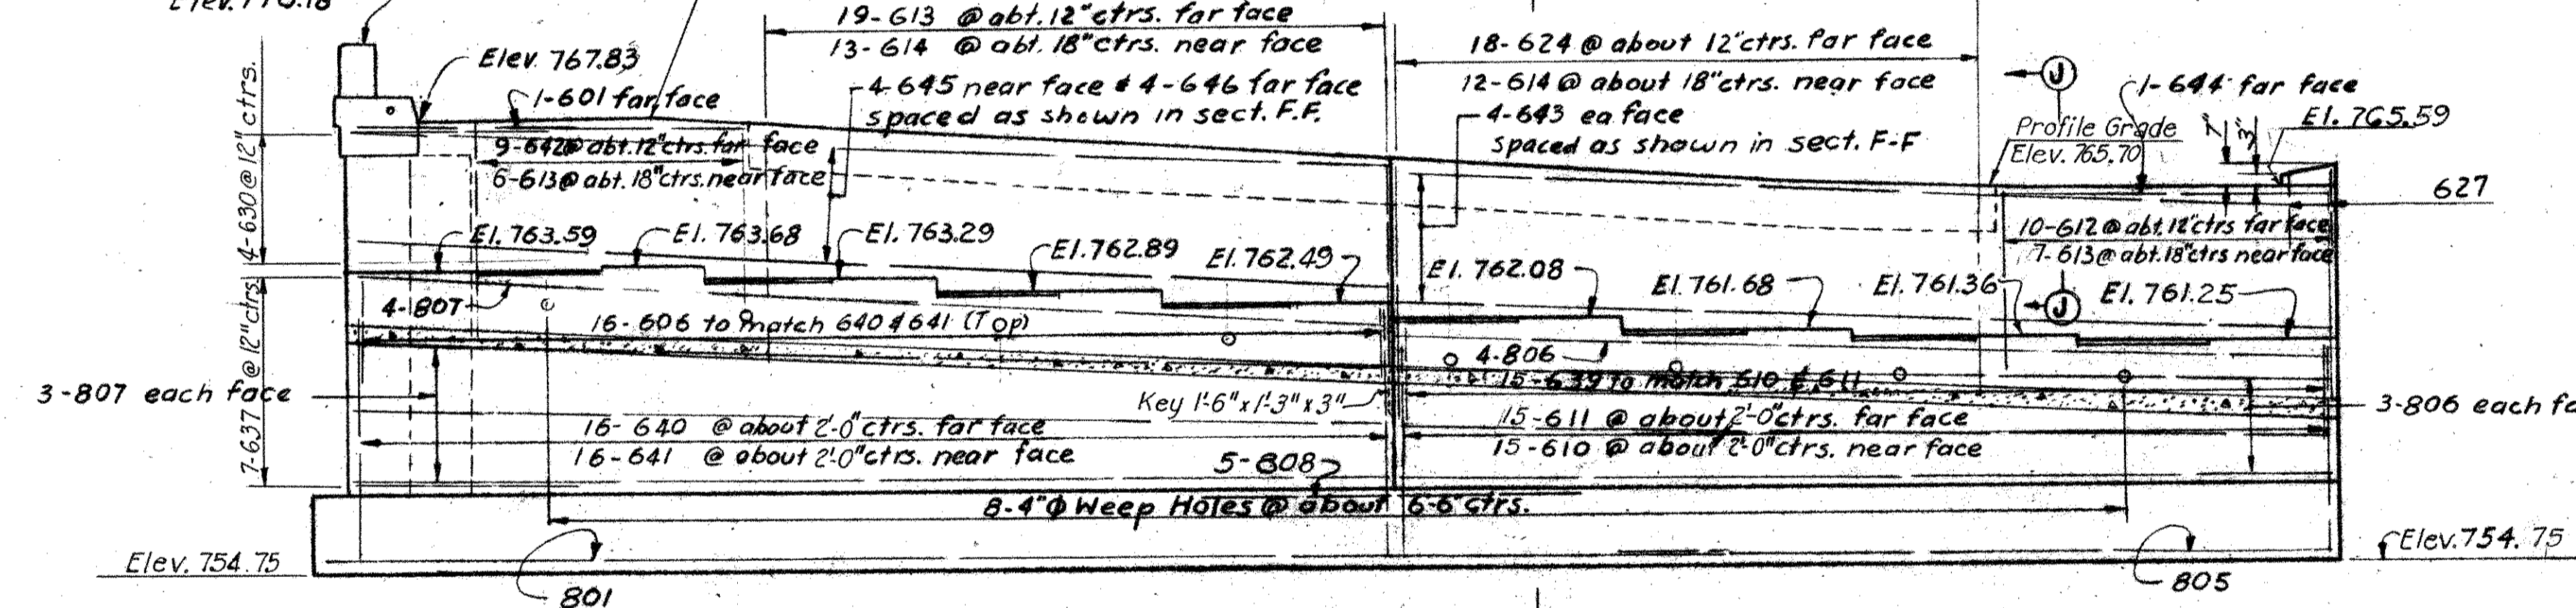 Elev. 770.18
19-613 @ abt. 12" ctrs. far face
13-614 @ abt. 18" ctrs. near face
18-624 @ about 12" ctrs. far face
12-614 @ about 18" ctrs. near face
Elev. 767.83
1-601 far face
4-645 near face & 4-646 far face
spaced as shown in sect. F.F.
4-643 ea face
spaced as shown in sect. F-F
J
1-644 far face
Profile Grade
Elev. 765.70
7"
3"
El. 765.59
627
9-642@ abt. 12" ctrs. far face
6-613@ abt. 18" ctrs. near face
4-630@12" ctrs.
10-612 @ abt. 12" ctrs far face
7-613@ abt. 18" ctrs near face
El. 763.59
El. 763.68
El. 763.29
El. 762.89
El. 762.49
El. 762.08
El. 761.68
El. 761.36
J
El. 761.25
4-807
16-606 to match 640 & 641 (Top)
4-806
15-639 to match 610 & 611
7-637 @ 12" ctrs.
3-807 each face
Key 1'-6" x 1'-3" x 3"
3-806 each fa
16-640 @ about 2'-0" ctrs. far face
16-641 @ about 2'-0" ctrs. near face
15-611 @ about 2'-0" ctrs. far face
15-610 @ about 2'-0" ctrs. near face
5-808
8-4"ϕ Weep Holes @ about 6'-6" ctrs.
Elev. 754.75
Elev. 754.75
801
805